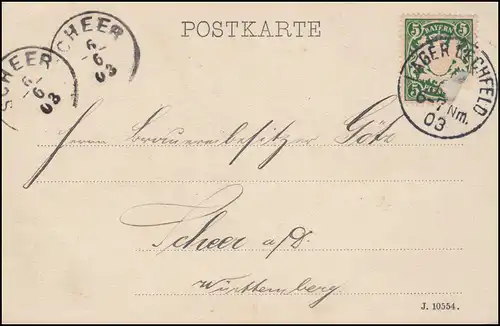 POSTKARTE
SCHEER
6/
6
03
SCHEER
6/
6
03
5 BAYERN 5
5 PFENNIG
LAGER LECHFELD
6-7 Nm.
03
Herrn Brauereibesitzer Götz
Scheer a/D.
Württemberg.
J. 10554.